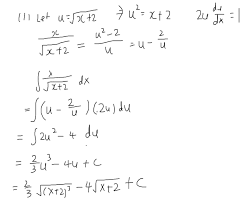 (1) Let u=√(x+2) ⇒ u²=x+2 2u du/dx = 1
x/√(x+2) = (u²-2)/u = u - 2/u
∫ x/√(x+2) dx
= ∫(u - 2/u)(2u) du
= ∫ 2u² - 4 du
= 2/3 u³ - 4u + C
= 2/3 √(x+2)³ - 4√(x+2) + C